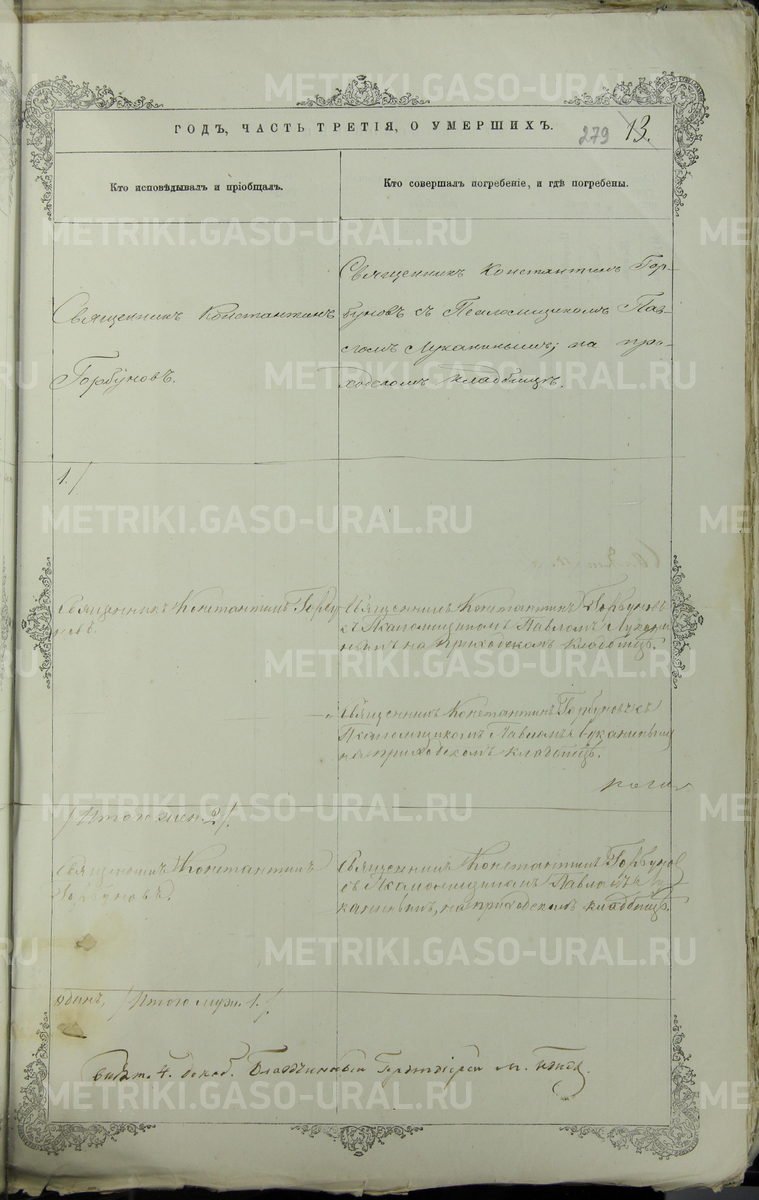 ГОДЪ, ЧАСТЬ ТРЕТІЯ, О УМЕРШИХЪ.
279 13.
Кто исповѣдывалъ и пріобщалъ.
Кто совершалъ погребеніе, и гдѣ погребены.
Священникъ Константинъ
Горбуновъ.
Священникъ Константинъ Гор-
буновъ съ Псаломщикомъ Пав-
ломъ Луканинымъ; на при-
ходскомъ кладбищѣ.
1./
Священникъ Константинъ Горбу
новъ.
Священникъ Константинъ Горбуновъ
съ Псаломщикомъ Павломъ Лукани
нымъ на приходскомъ кладбищѣ.
Священникъ Константинъ Горбуновъ съ
Псаломщикомъ Павломъ Луканинымъ
на приходскомъ кладбищѣ.
/Итого жен. 2/.
Священникъ Константинъ
Горбуновъ.
Священникъ Константинъ Горбунов
съ Псаломщикомъ Павломъ Лу-
канинымъ, на приходскомъ кладбищѣ.
одинъ, /Итого муж. 1./
Благочинный
METRIKI.GASO-URAL.RU